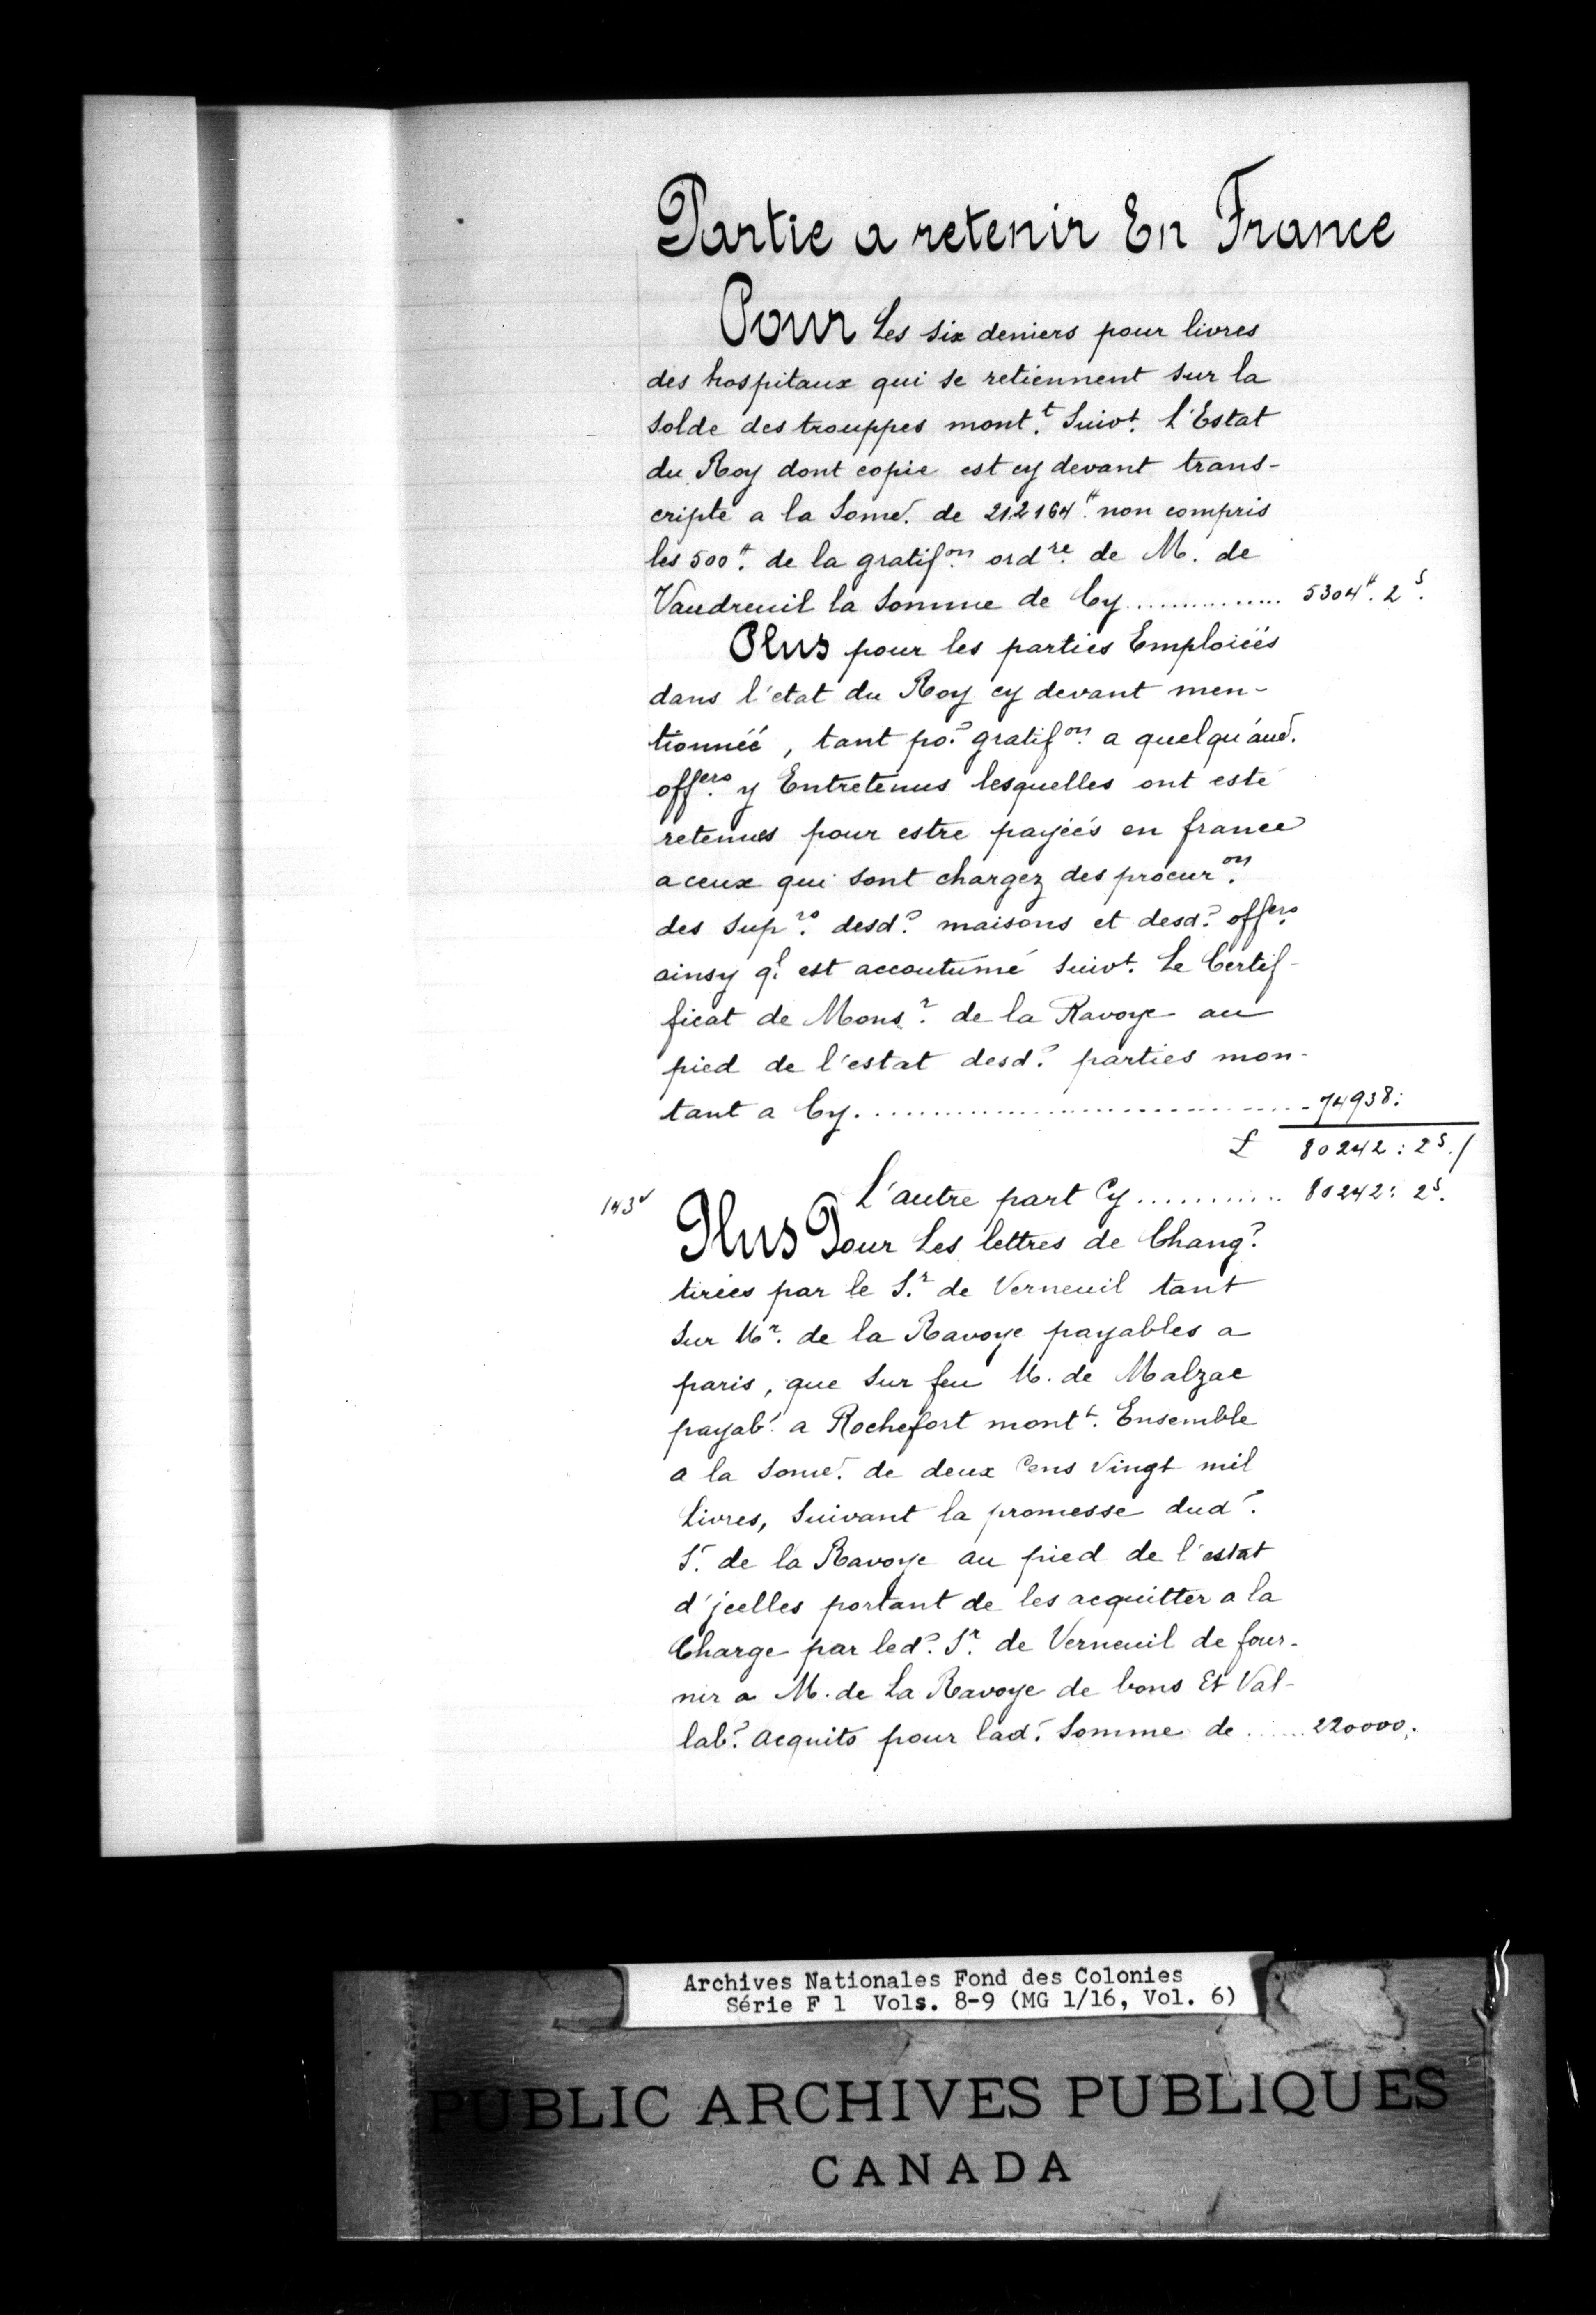 Partie a retenir En France
Pour Les six deniers pour livres
des hospitaux qui se retiennent sur la
solde des trouppes mont.t Suivt. L'Estat
du Roy dont copie est cy devant trans-
cripte a la Some. de 212164# non compris
les 500# de la gratif.on ord.re de M. de
Vaudreuil la Somme de Cy............... 5304#. 2s.
Plus pour les parties Emploiéés
dans l'etat du Roy cy devant men-
tionnéé, tant po.r gratif.on a quelqu'aud.
off.ers y Entretenus lesquelles ont esté
retenues pour estre payéés en france
a ceux qui sont chargez des procur.on
des Sup.rs desd.s maisons et desd.s off.ers
ainsy q.l est accoutumé suivt. Le Certif-
ficat de Mons.r de la Ravoye au
pied de l'estat desd.s parties mon-
tant a Cy............................... 74938:
£ 80242: 2s./
143v L'autre part Cy........... 80242: 2s.
Plus Pour Les lettres de Chang.e
tirées par le S.r de Verneuil tant
Sur Mr. de la Ravoye payables a
paris, que Sur feu M. de Malzac
payab.s a Rochefort montt. Ensemble
a la Some. de deux Cens Vingt mil
Livres, Suivant la promesse dud.
S.r de la Ravoye au pied de l'estat
d'jcelles portant de les acquitter a la
Charge par led.t Sr. de Verneuil de four-
nir a M. de La Ravoye de bons Et Val-
lab.s Acquits pour lad. Somme de ...... 220000:
Archives Nationales Fond des Colonies
Série F 1 Vols. 8-9 (MG 1/16, Vol. 6)
PUBLIC ARCHIVES PUBLIQUES
CANADA